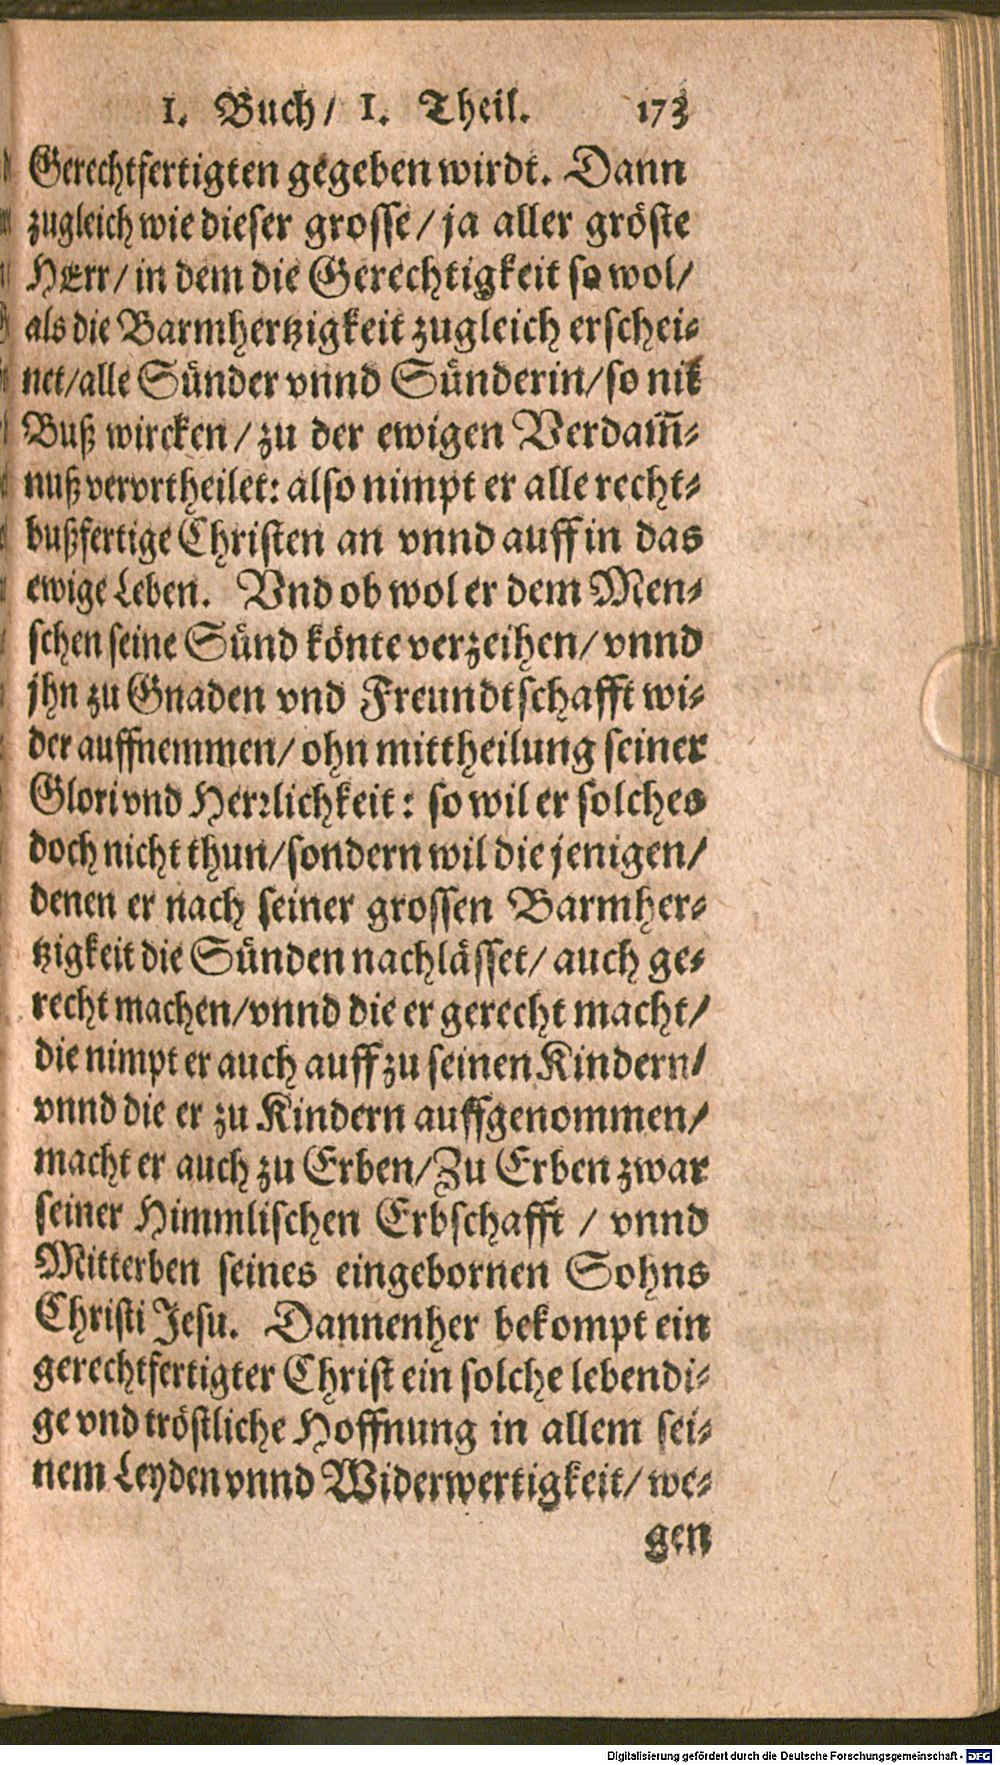 1. Buch/ 1. Theil. 173
Gerechtfertigten gegeben wirdt. Dann
zugleich wie dieser grosse/ ja aller gröste
HErr/ in dem die Gerechtigkeit so wol/
als die Barmhertzigkeit zugleich erschei-
net/alle Sünder vnnd Sünderin/so nit
Buß wircken/ zu der ewigen Verdam̃-
nuß vervrtheilet: also nimpt er alle recht-
bußfertige Christen an vnnd auff in das
ewige Leben. Vnd ob wol er dem Men-
schen seine Sünd könte verzeihen/ vnnd
jhn zu Gnaden vnd Freundtschafft wi-
der auffnemmen/ ohn mittheilung seiner
Glori vnd Herꝛlichkeit: so wil er solches
doch nicht thun/sondern wil die jenigen/
denen er nach seiner grossen Barmher-
tzigkeit die Sünden nachlässet/ auch ge-
recht machen/vnnd die er gerecht macht/
die nimpt er auch auff zu seinen Kindern/
vnnd die er zu Kindern auffgenommen/
macht er auch zu Erben/Zu Erben zwar
seiner Himmlischen Erbschafft / vnnd
Mitterben seines eingebornen Sohns
Christi Jesu. Dannenher bekompt ein
gerechtfertigter Christ ein solche lebendi-
ge vnd tröstliche Hoffnung in allem sei-
nem Leyden vnnd Widerwertigkeit/ we-
gen
Digitalisierung gefördert durch die Deutsche Forschungsgemeinschaft - DFG